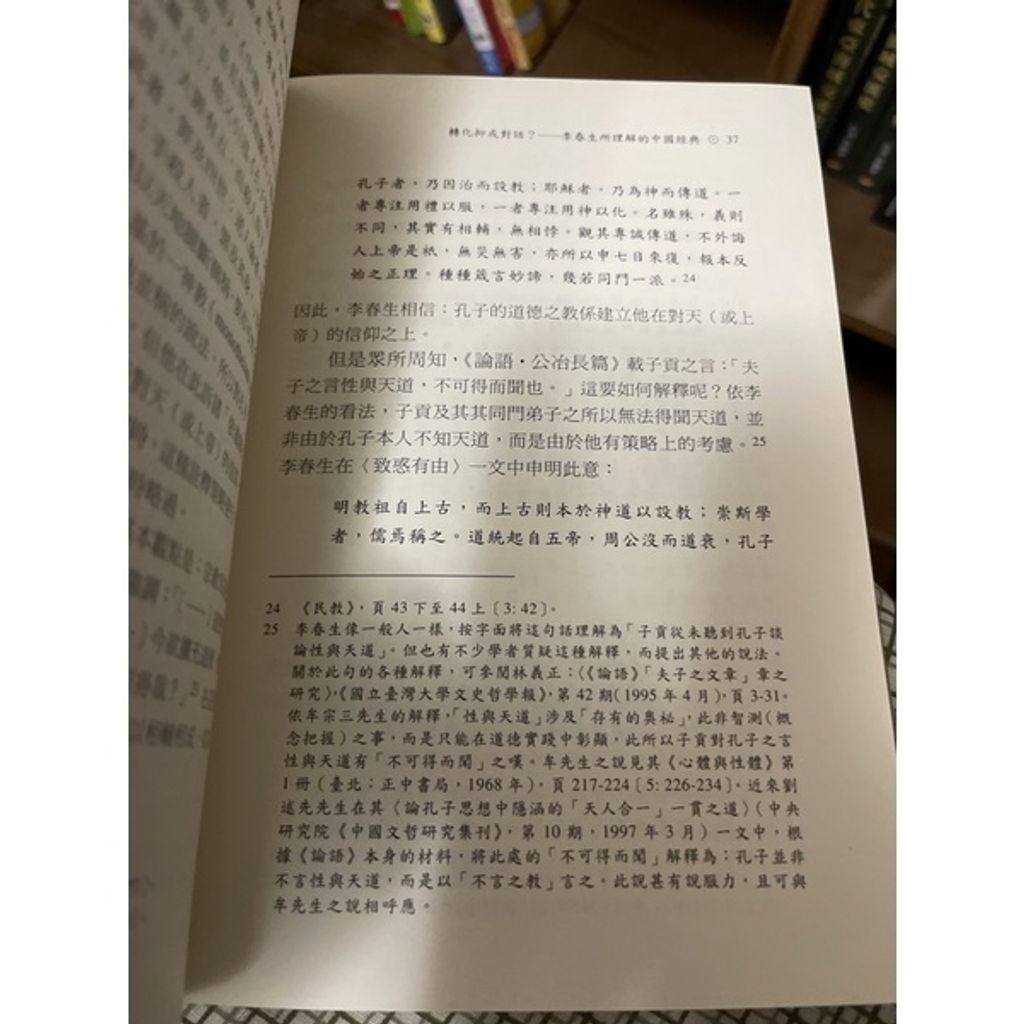 轉化抑或對話？——李春生所理解的中國經典 ⊙ 37
孔子者，乃因治而設教；耶穌者，乃為神而傳道。一
者專注用禮以服，一者專注用神以化。名雖殊，義則
不同，其實有相輔，無相悖。觀其專誠傳道，不外誨
人上帝是祇，無災無害，亦所以申七日來復，報本反
始之正理。種種箴言妙諦，幾若同門一派。24
因此，李春生相信：孔子的道德之教係建立他在對天（或上
帝）的信仰之上。
但是眾所周知，《論語·公冶長篇》載子貢之言：「夫
子之言性與天道，不可得而聞也。」這要如何解釋呢？依李
春生的看法，子貢及其其同門弟子之所以無法得聞天道，並
非由於孔子本人不知天道，而是由於他有策略上的考慮。25
李春生在〈致惑有由〉一文中申明此意：
明教祖自上古，而上古則本於神道以設教；崇斯學
者，儒焉稱之。道統起自五帝，周公沒而道衰，孔子
24 《民教》，頁 43 下至 44 上〔3: 42〕。
25 李春生像一般人一樣，按字面將這句話理解為「子貢從未聽到孔子談
論性與天道」。但也有不少學者質疑這種解釋，而提出其他的說法。
關於此句的各種解釋，可參閱林義正：〈《論語》「夫子之文章」章之
研究〉，《國立臺灣大學文史哲學報》，第 42 期（1995 年 4 月），頁 3-31。
依牟宗三先生的解釋，「性與天道」涉及「存有的奧祕」，此非智測（概
念把握）之事，而是只能在道德實踐中彰顯，此所以子貢對孔子之言
性與天道有「不可得而聞」之嘆。牟先生之說見其《心體與性體》第
1 冊（臺北：正中書局，1968 年），頁 217-224〔5: 226-234〕。近來劉
述先先生在其〈論孔子思想中隱涵的「天人合一」一貫之道〉（中央
研究院《中國文哲研究集刊》，第 10 期，1997 年 3 月）一文中，根
據《論語》本身的材料，將此處的「不可得而聞」解釋為：孔子並非
不言性與天道，而是以「不言之教」言之。此說甚有說服力，且可與
牟先生之說相呼應。